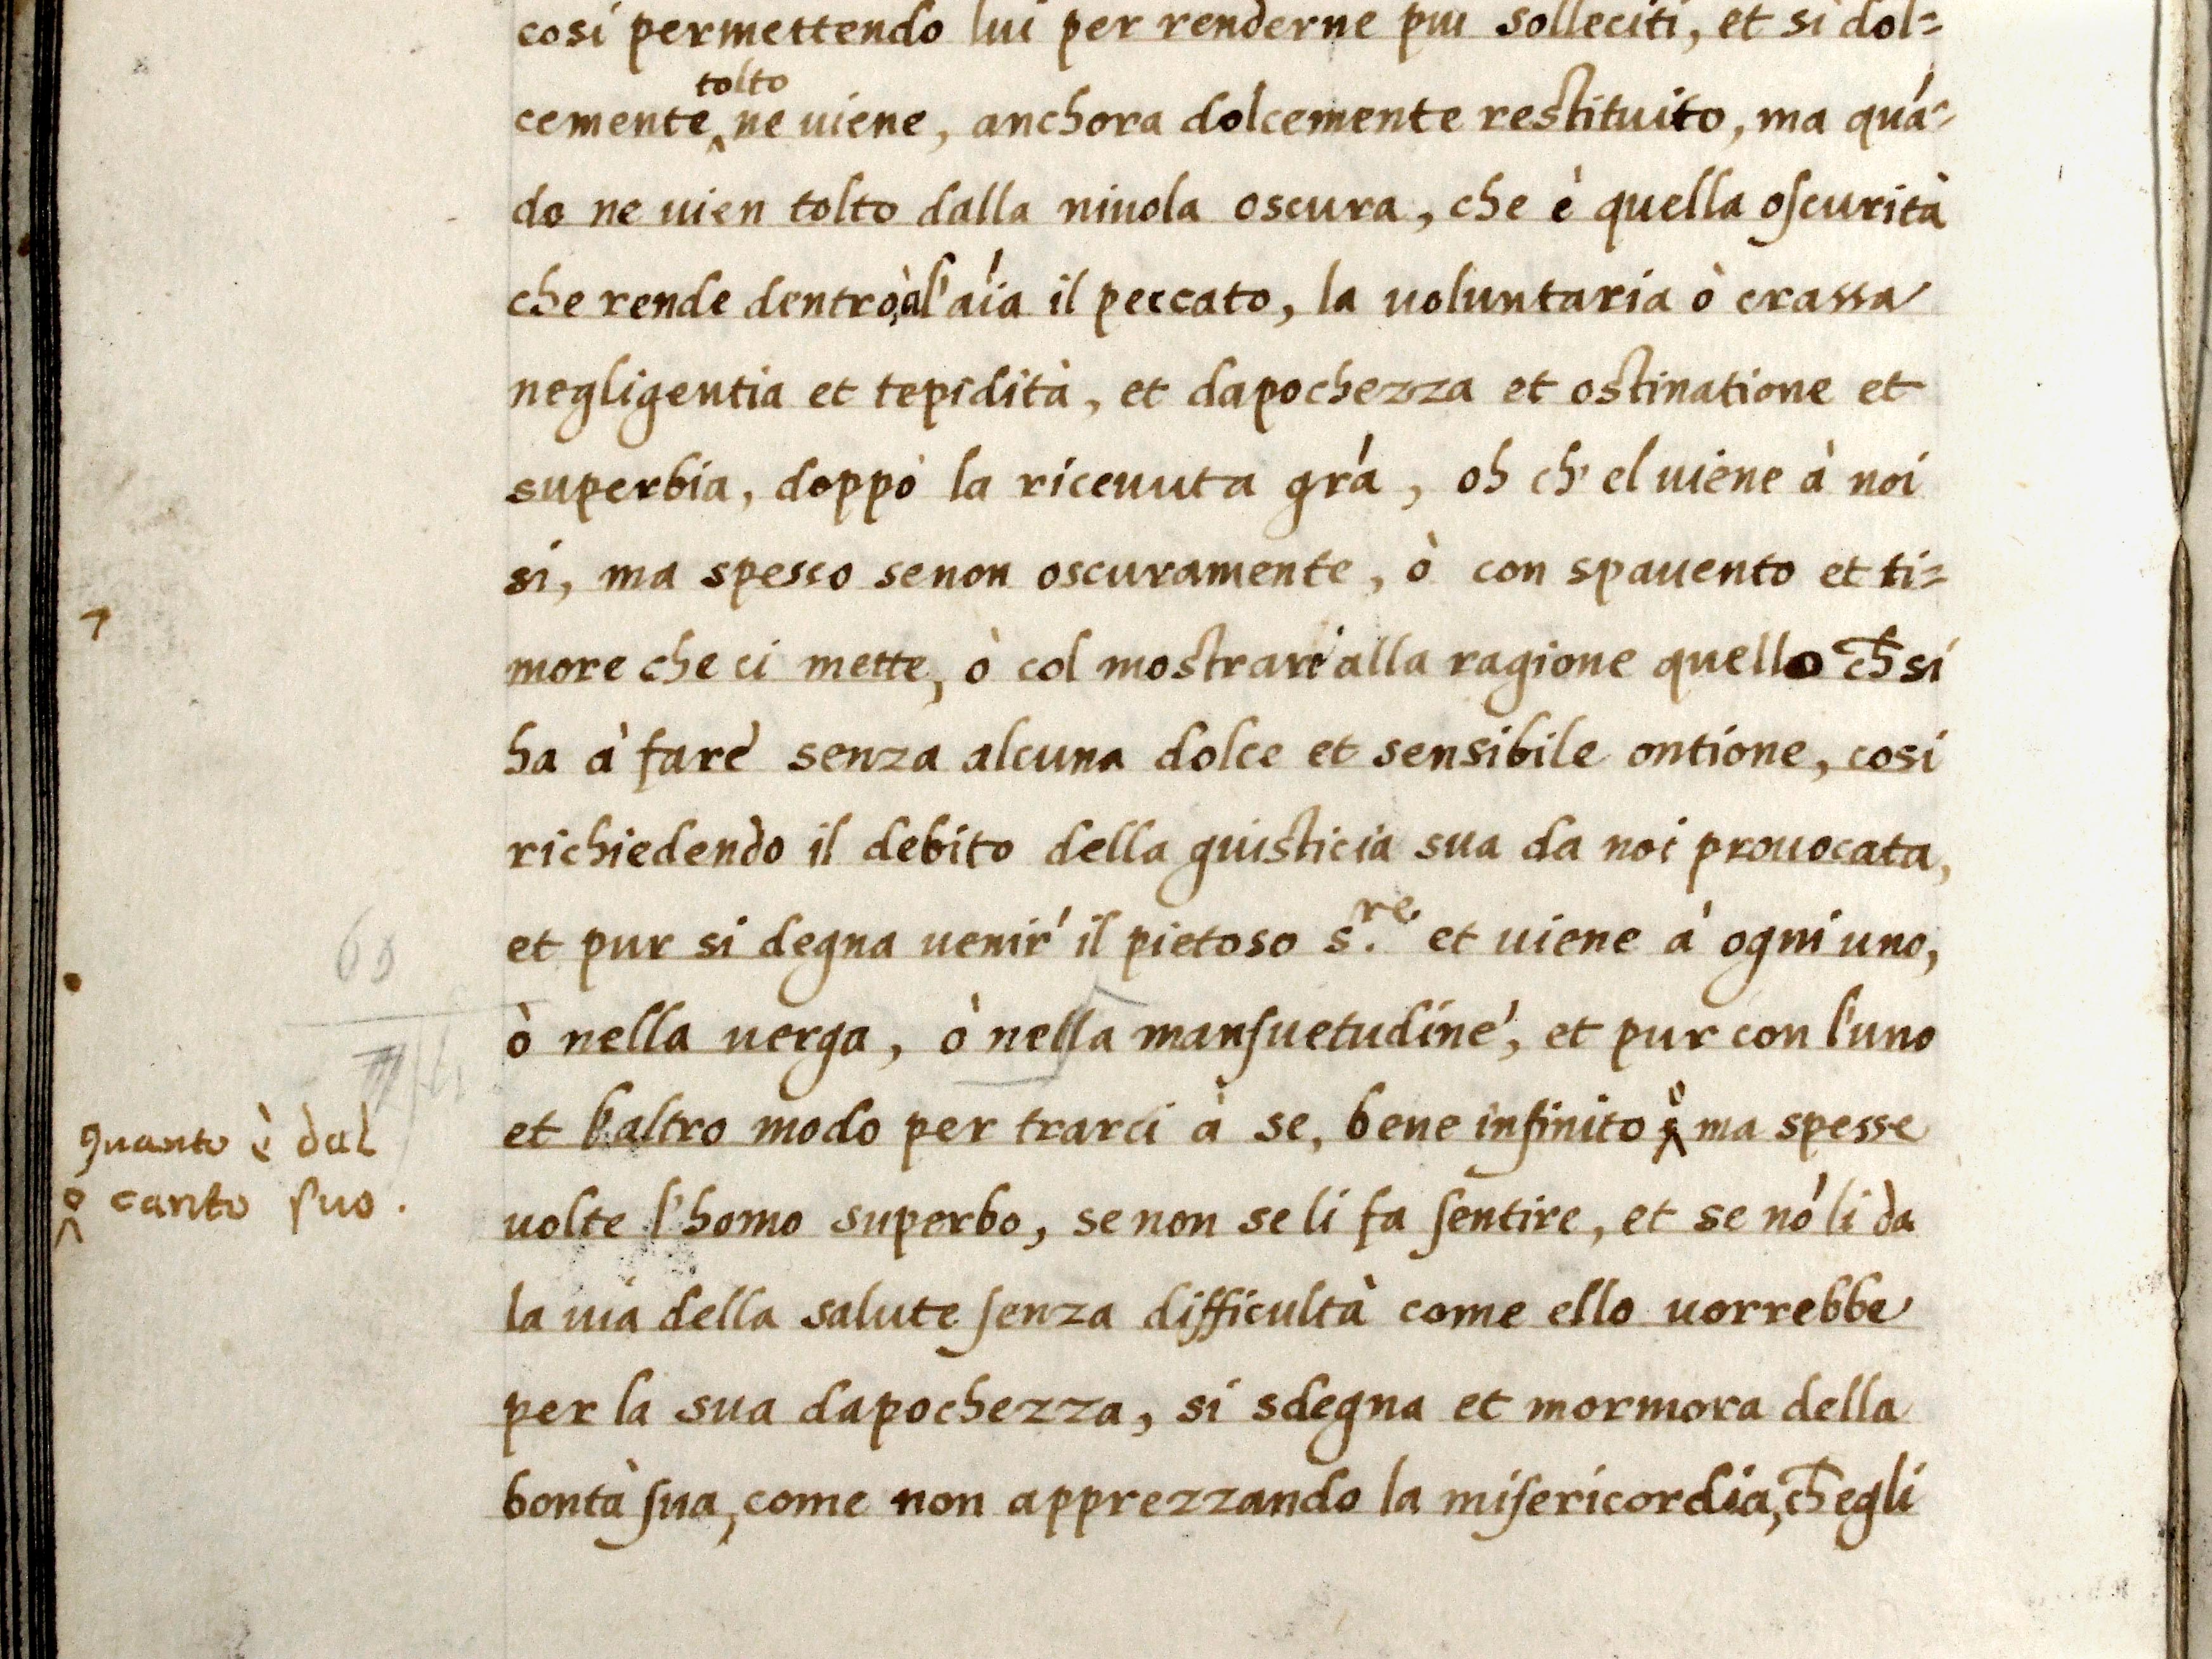 cosi permettendo lui per renderne piu solleciti, et si dol=
tolto
cemente ne uiene, anchora dolcemente restituito, ma quá=
do ne uien tolto dalla niuola oscura, che è quella oſcurità
che rende dentrò, al'aía il peccato, la uoluntaria ò crassa
negligentia et tepidità, et dapochezza et ostinatione et
superbia, doppò la riceuuta grá, oh ch'el uiene à noi
si, ma spesso senon oscuramente, ò con spauento et ti=
more che ci mette, ò col mostrari alla ragione quello ch̄ si
ha à fare senza alcuna dolce et sensibile ontione, cosi
richiedendo il debito della giusticia sua da noi prouocata,
et pur si degna uenir il pietoso s.re et uiene à ogni uno,
60
ò nella uerga, ò nella manſuetudine, et pur con l'uno
et l'altro modo per trarci à se, bene infinito ma spesse
quanto è dal
canto ſuo.
uolte l'homo superbo, se non se li fa ſentire, et se nó li da
la uia della salute ſenza difficultà come ello uorrebbe
per la sua dapochezza, si sdegna et mormora della
bontà ſua, come non apprezzando la miſericordia, ch̄ egli